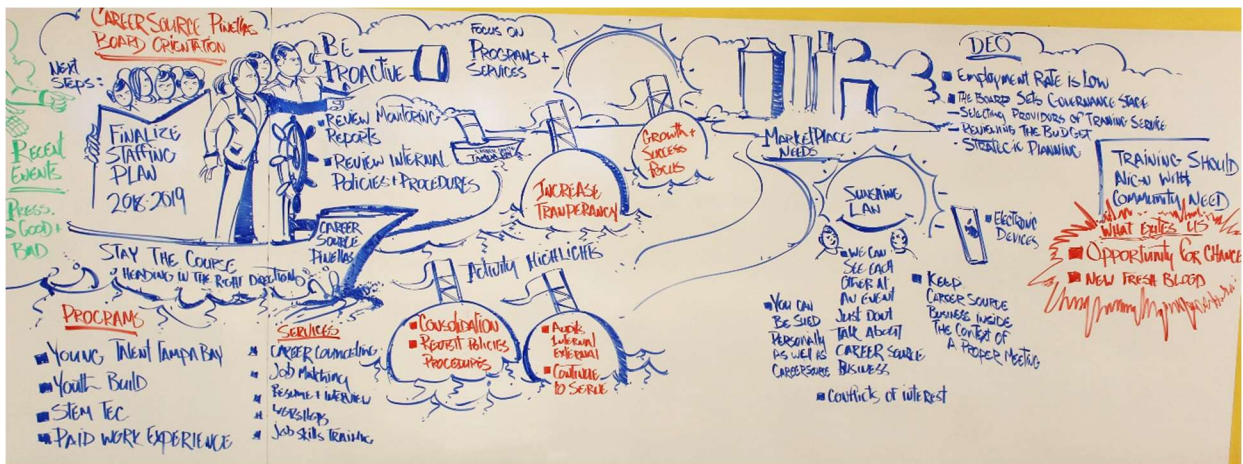 CAREER SOURCE PINELLAS
BOARD ORIENTATION
NEXT
STEPS:
FINALIZE
STAFFING
PLAN
2018-2019
RECENT
EVENTS
PRESS
GOOD +
BAD
BE
PROACTIVE
REVIEW MONITORING
REPORTS
REVIEW INTERNAL
POLICIES + PROCEDURES
CAREER
SOURCE
PINELLAS
STAY THE COURSE
HEADING IN THE RIGHT DIRECTION
PROGRAMS
YOUNG TALENT TAMPA BAY
YOUTH BUILD
STEM TEC
PAID WORK EXPERIENCE
SERVICES
CAREER COUNCELING
JOB MATCHING
RESUME + INTERVIEW
WORSHOPS
JOB SKILLS TRAINING
FOCUS ON
PROGRAMS +
SERVICES
TAMPA BAY
INCREASE
TRANPERANCY
GROWTH +
SUCCESS
FOCUS
ACTIVITY HIGHLIGHTS
CONSOLIDATION
REVISIT POLICIES
PROCEDURES
AUDITS
INTERNAL
EXTERNAL
CONTINUE
TO SERVE
MARKETPLACE
NEEDS
SUNSHINE
LAW
WE CAN
SEE EACH
OTHER AT
AN EVENT
JUST DON'T
TALK ABOUT
CAREER SOURCE
BUSINESS
YOU CAN
BE SUED
PERSONALLY
AS WELL AS
CAREERSOURCE
CONFLICTS OF INTEREST
ELECTRONIC
DEVICES
KEEP
CAREER SOURCE
BUSINESS INSIDE
THE CONTEXT OF
A PROPER MEETING
DEO
EMPLOYMENT RATE IS LOW
THE BOARD SETS GOVERNANCE STAGE
SELECTING PROVIDORS OF TRAINING SERVICE
REVIEWING THE BUDGET
STRATEGIC PLANNING
TRAINING SHOULD
ALIGN WITH
COMMUNITY NEED
WHAT EXITES US
OPPORTUNITY FOR CHANGE
NEW FRESH BLOOD